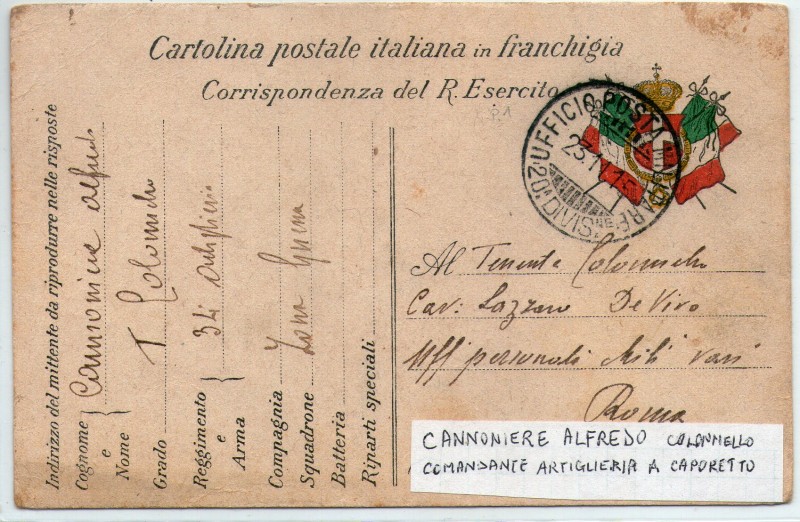 Cartolina postale italiana in franchigia
Corrispondenza del R. Esercito
UFFICIO POSTA MILITARE
23.11.15
20ª DIVISNE
Indirizzo del mittente da riprodurre nelle risposte
Cognome e Nome Cannoniere Alfredo
Grado T. Colonnello
Reggimento e Arma 34 Artiglieria
Compagnia
Squadrone Zona Guerra
Batteria
Riparti speciali
Al Tenente Colonnello
Cav: Lazzaro De Vivo
Uff personali Mili vari
Roma
CANNONIERE ALFREDO COLONNELLO
COMANDANTE ARTIGLIERIA A CAPORETTO